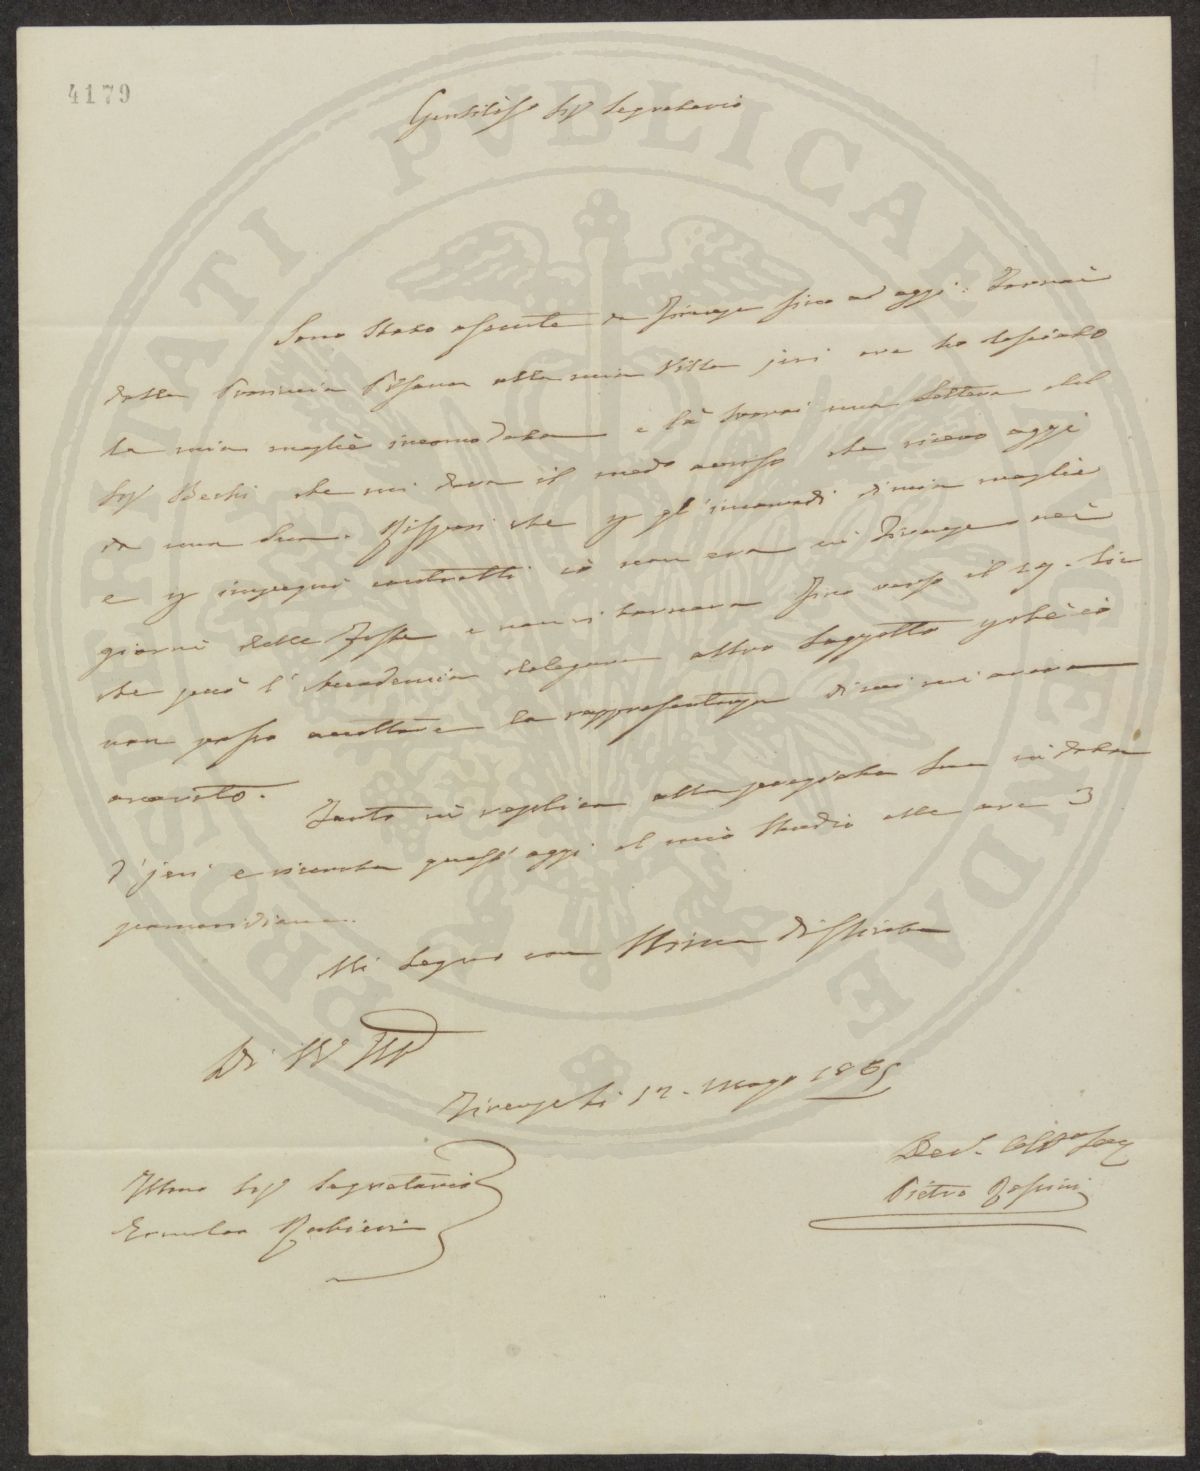 4179
Gentiliss° Sigr Segretario
Sono stato assente da Firenze fino ad oggi. Tornai
dalla Provincia Pisana alla mia Villa jeri ove ho lasciato
la mia moglie incomodata e là trovai una lettera del
Sigr Bechi che mi dava il medo avviso che ricevo oggi
da una Sua. Risposi che p gl'incomodi di mia moglie
e p impegni contratti io non era in Firenze nei
giorni delle Feste e non vi tornava fino verso il 29. Sic
che però l'Accademia deleghi altro Soggetto perché io
non posso accettare la rappresentanza di cui mi aveva
onorato.
Tanto in replica alla pregiata Sua in data
d'jeri e ricevuta quest'oggi al mio Studio alle ore 3
pomeridiane.
Mi segno con Stima distinta
Di VS Ill
Firenze li 12. Maggo 1865
Dev.
Pietro Rossini
Illmo Sigr Segretario
Ermolao Rubieri
PROSPERITATI PVBLICAE AVGENDAE